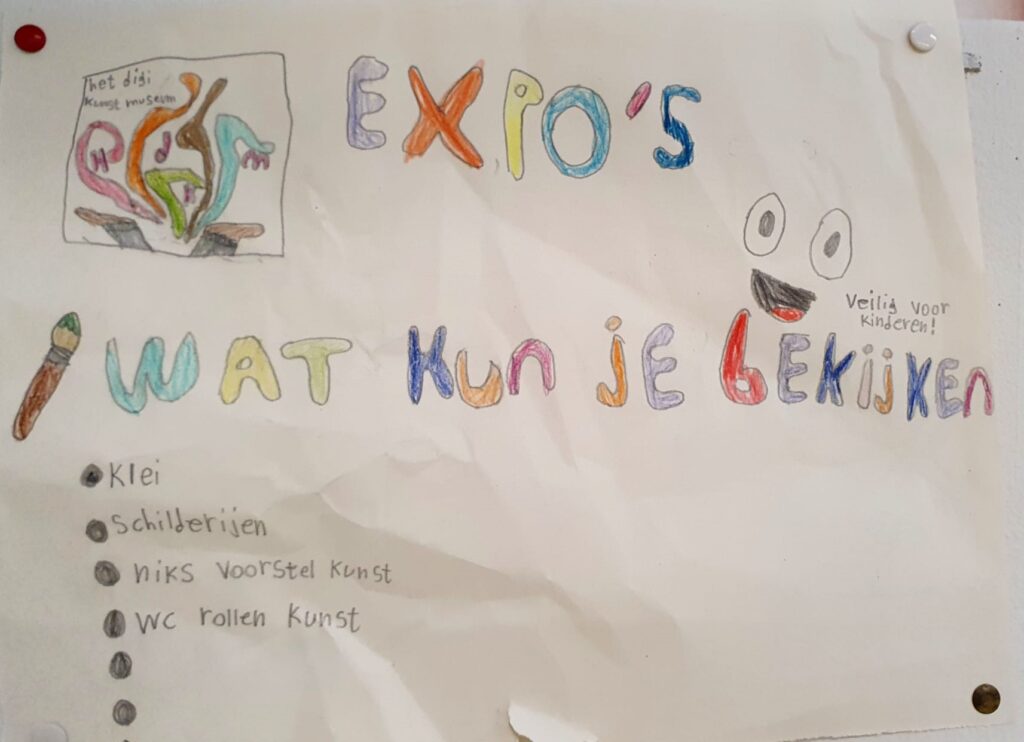 het digi
kunst museum
EXPO'S
Veilig voor
kinderen!
WAT Kun jE bEKijKEn
Klei
Schilderijen
niks voorstel kunst
WC rollen kunst